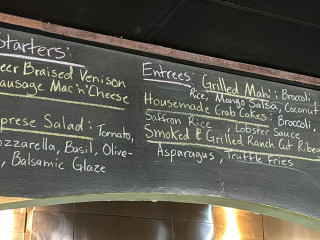 Starters:
Beer Braised Venison
Sausage Mac'n'Cheese
prese Salad: Tomato,
ozzarella, Basil, Olive-
, Balsamic Glaze
Entrees: Grilled Mahi: Broccoli
Rice, Mango Salsa, Coconut
Housemade Crab Cakes: Broccoli,
Saffron Rice, Lobster Sauce
Smoked & Grilled Ranch Cut Ribeye
Asparagus, Truffle Fries